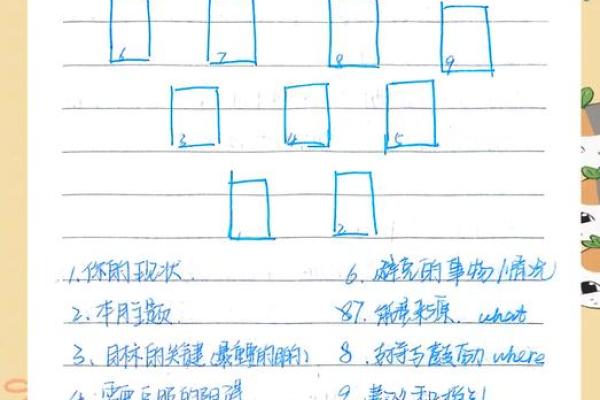 6 7 8 9
3 4 5
1 2
1. 你的现状 6. 避免的事物/情况
2. 本月主题 7. 能量来源. what
3. 目标的关键(最重要的目的) 8. 支持与鼓励 where
4. 需要克服的阻碍 9. 建议和指引